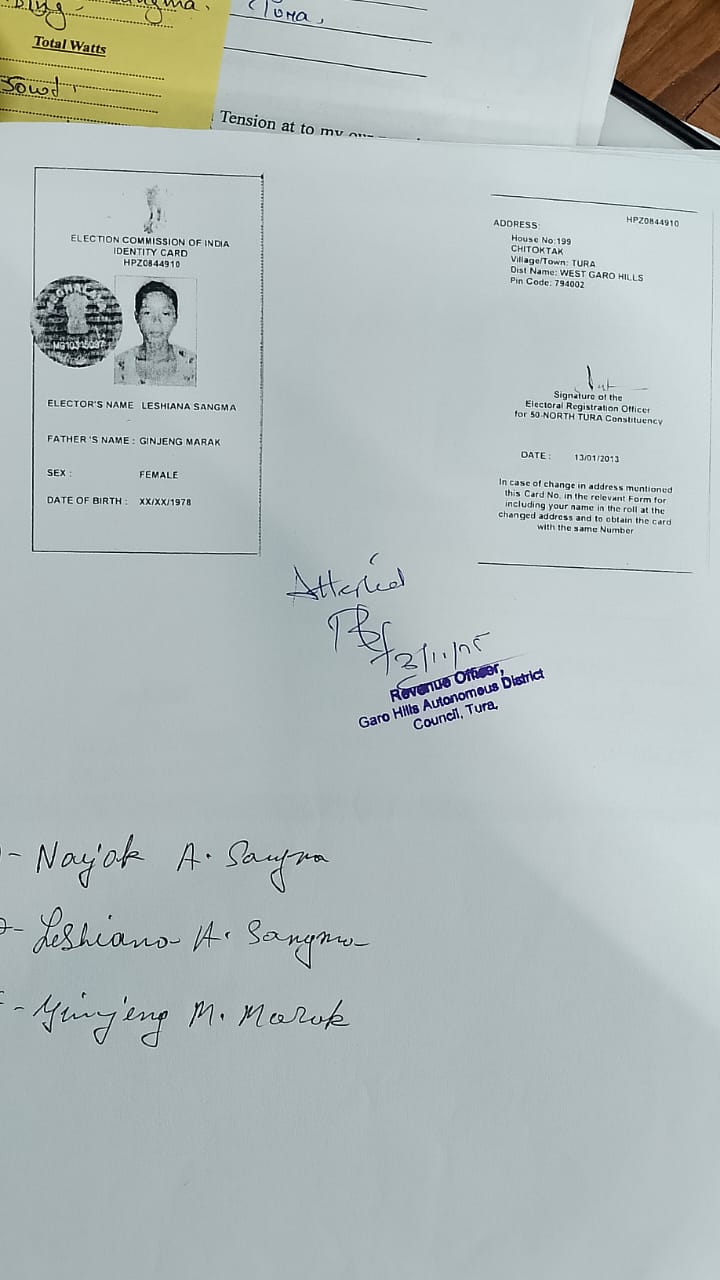 Total Watts
Tura,
Tension at to my
ELECTION COMMISSION OF INDIA
IDENTITY CARD
HPZ0844910
ELECTOR'S NAME LESHIANA SANGMA
FATHER'S NAME : GINJENG MARAK
SEX : FEMALE
DATE OF BIRTH : XX/XX/1978
HPZ0844910
ADDRESS:
House No:199
CHITOKTAK
Village/Town: TURA
Dist Name: WEST GARO HILLS
Pin Code: 794002
Signature of the
Electoral Registration Officer
for 50-NORTH TURA Constituency
DATE : 13/01/2013
In case of change in address mentioned
this Card No. in the relevant Form for
including your name in the roll at the
changed address and to obtain the card
with the same Number
Attested
Revenue Officer,
Garo Hills Autonomous District
Council, Tura.
- Nayjok A. Sangma
- Leshiana A. Sangma
- Ginjeng M. Marak